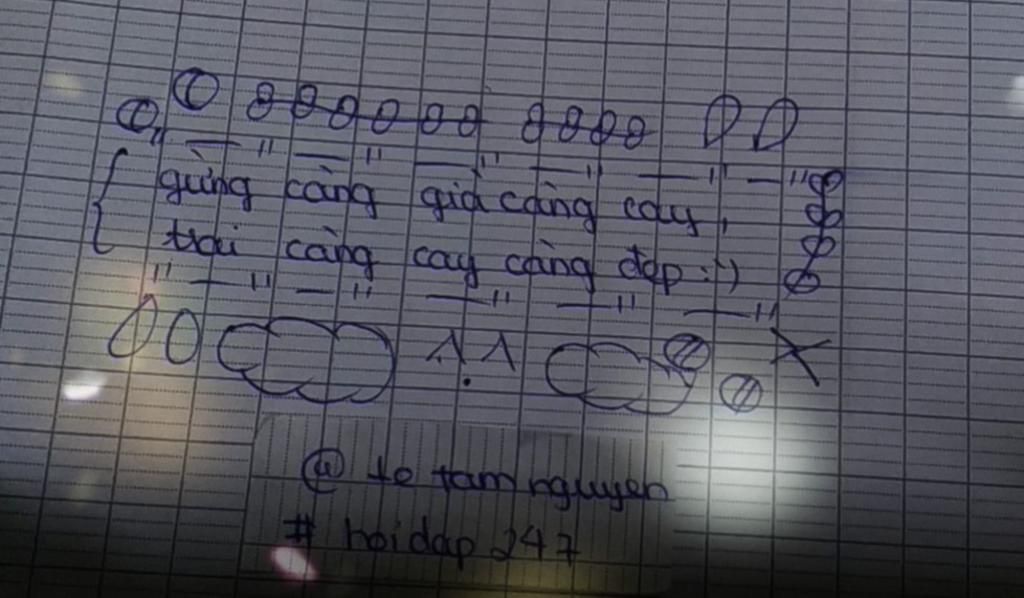 gừng càng già càng cay,
trai càng cay càng đẹp :")
@ te tam nguyen
# hoidap 247